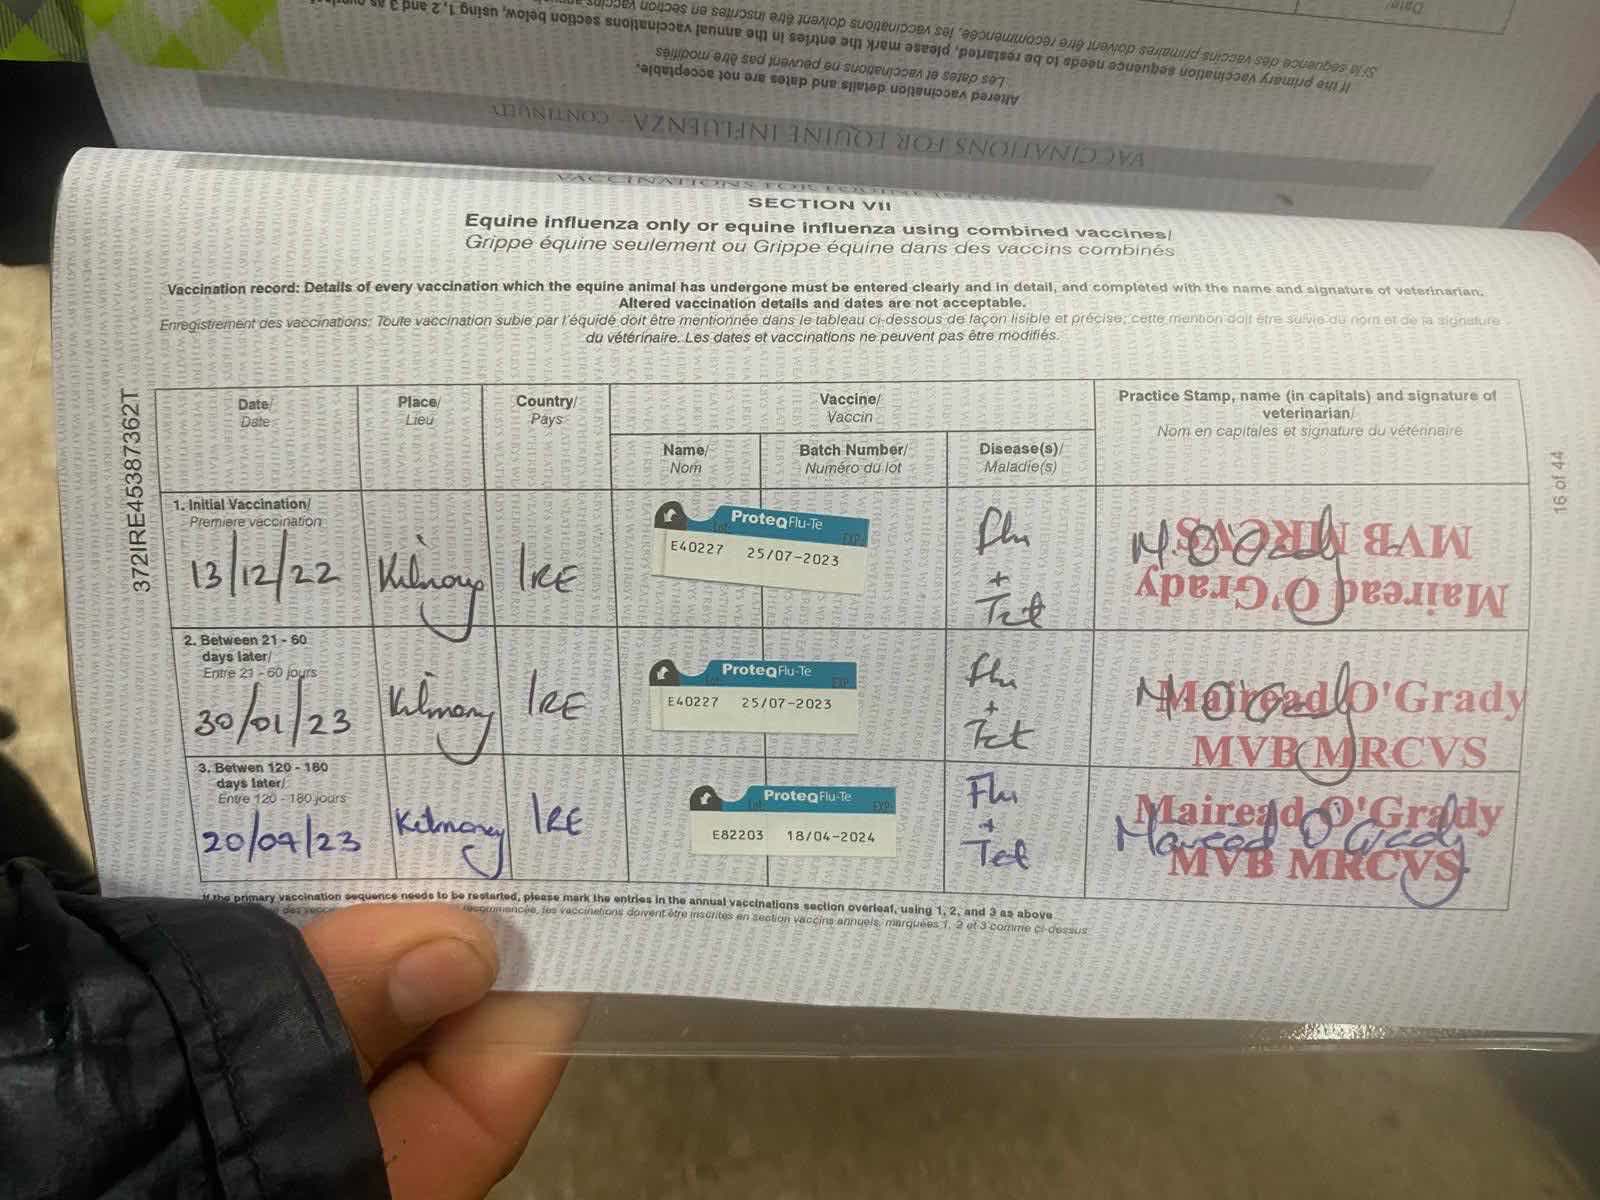 Date/
Si la séquence des vaccins primaires doivent être recommencée, les vaccinations doivent être inscrites en section vaccins
If the primary vaccination sequence needs to be restarted, please mark the entries in the annual vaccinations section below, using 1, 2 and 3 as
Les dates et vaccinations ne peuvent pas être modifiés
Altered vaccination details and dates are not acceptable.
VACCINATIONS FOR EQUINE INFLUENZA - CONTINUED
SECTION VII
Equine influenza only or equine influenza using combined vaccines/
Grippe équine seulement ou Grippe équine dans des vaccins combinés
Vaccination record: Details of every vaccination which the equine animal has undergone must be entered clearly and in detail, and completed with the name and signature of veterinarian.
Altered vaccination details and dates are not acceptable.
Enregistrement des vaccinations: Toute vaccination subie par l'équidé doit être mentionnée dans le tableau ci-dessous de façon lisible et précise; cette mention doit être suivie du nom et de la signature
du vétérinaire. Les dates et vaccinations ne peuvent pas être modifiés.
372IRE45387362T
16 of 44
Date/
Date
Place/
Lieu
Country/
Pays
Vaccine/
Vaccin
Practice Stamp, name (in capitals) and signature of
veterinarian/
Nom en capitales et signature du vétérinaire
Name/
Nom
Batch Number/
Numéro du lot
Disease(s)/
Maladie(s)
1. Initial Vaccination/
Premiere vaccination
13/12/22
Kilmony
IRE
ProteqFlu-Te
Lot EXP.
E40227 25/07-2023
Flu
+
Tet
M. O'Grady
Mairead O'Grady
MVB MRCVS
2. Between 21 - 60
days later/
Entre 21 - 60 jours
30/01/23
Kilmony
IRE
ProteqFlu-Te
Lot EXP.
E40227 25/07-2023
Flu
+
Tet
M O'Grady
Mairead O'Grady
MVB MRCVS
3. Betwen 120 - 180
days later/
Entre 120 - 180 jours
20/07/23
Kilmony
IRE
ProteqFlu-Te
Lot EXP.
E82203 18/04-2024
Flu
+
Tet
Mairead O'Grady
Mairead O'Grady
MVB MRCVS
If the primary vaccination sequence needs to be restarted, please mark the entries in the annual vaccinations section overleaf, using 1, 2, and 3 as above
des recommencée, les vaccinations doivent être inscrites en section vaccins annuels, marquées 1, 2 et 3 comme ci-dessus